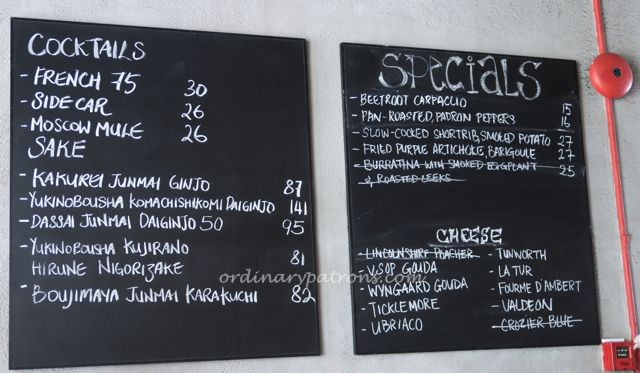 COCKTAILS
- FRENCH 75 30
- SIDE CAR 26
- MOSCOW MULE 26
SAKE
- KAKUREI JUNMAI GINJO 87
- YUKINOBOUSHA KOMACHISHIKOMI DAIGINJO 141
- DASSAI JUNMAI DAIGINJO 50 95
- YUKINOBOUSHA KUJIRANO
HIRUNE NIGORIZAKE 81
- BOUJIMAYA JUNMAI KARAKUCHI 82
SPECIALS
- BEETROOT CARPACCIO 15
- PAN-ROASTED, PADRON PEPPERS 16
- SLOW-COOKED SHORTRIB, SMOKED POTATO 27
- FRIED PURPLE ARTICHOKE, BARIGOULE 27
- BURRATINA WITH SMOKED EGGPLANT 25
& ROASTED LEEKS
CHEESE
- LINCOLNSHIRE POACHER
- V.S.O.P GOUDA
- WYNGAARD GOUDA
- TICKLEMORE
- UBRIACO
- TUNWORTH
- LA TUR
- FOURME D'AMBERT
- VALDEON
- CROZIER BLUE
ordinarypatrons.com